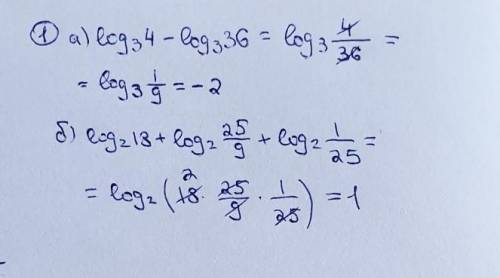 ① а) log₃4 − log₃36 = log₃ 4/36 =
= log₃ 1/9 = −2
б) log₂18 + log₂ 25/9 + log₂ 1/25 =
= log₂ (18 2 · 25/9 · 1/25) = 1